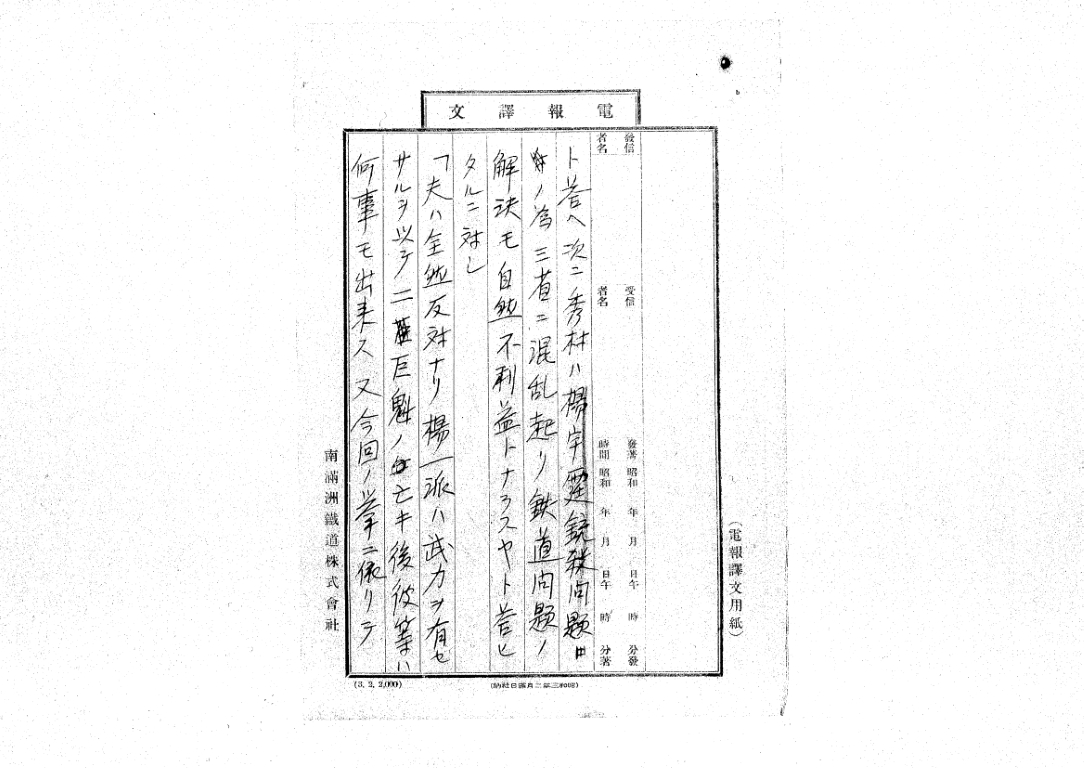 電報譯文
發信者名
受信者名
發著時間 昭和 年 月 日午 時 分發
昭和 年 月 日午 時 分著
ト答ヘ次ニ秀材ハ楊宇霆銃殺問題
ノ為三省ニ混乱起リ鉄道問題ノ
解決モ自然不利益トナラスヤト答ヒ
タルニ対し
「夫ハ全然反対ナリ楊一派ハ武力ヲ有セ
サルヲ以テ二巨魁ノ亡キ後彼等ハ
何事モ出来ス又今回ノ挙ニ依リテ
南滿洲鐵道株式會社
(電報譯文用紙)
(3. 2. 2,000)